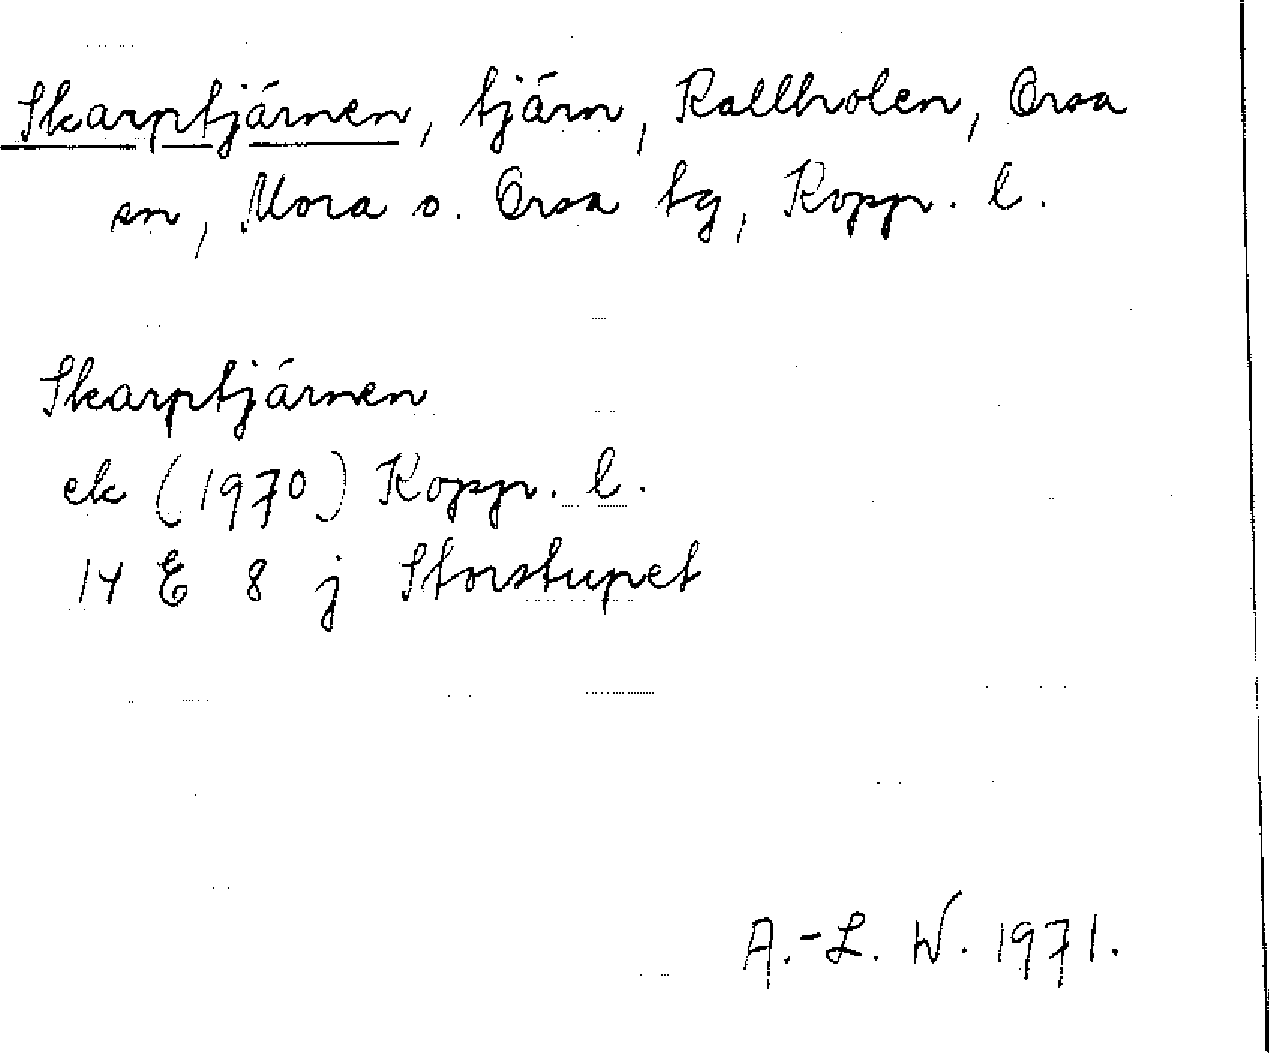 Skarptjärnen, tjärn, Kallholen, Orsa
sn, Mora o. Orsa tg, Kopp. l.
Skarptjärnen
ek (1970) Kopp. l.
14 E 8 j Storstupet
A.-L. W. 1971.